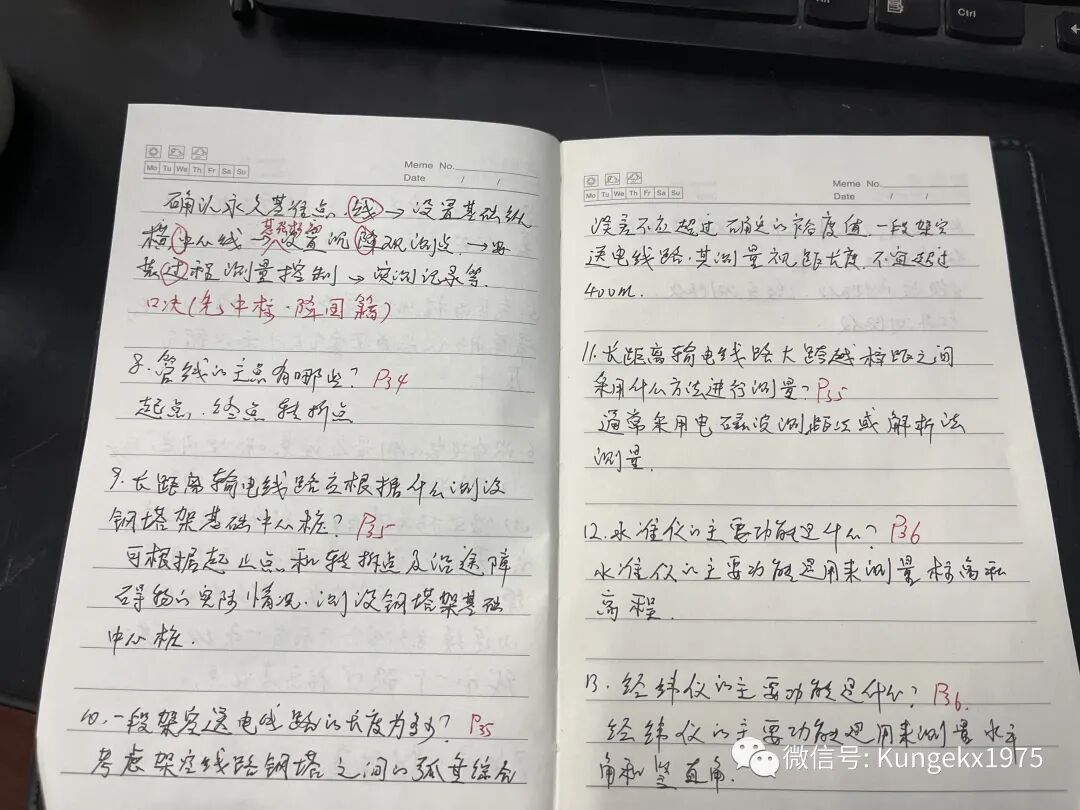 Alt
Ctrl
Meme No.
Mo Tu We Th Fr Sa Su
Date / /
确认永久基准点、线→设置基础纵
横中心线→设置沉降观测点→安
装过程测量控制→实测记录等.
8.管线的主点有哪些? P34
起点、终点转折点
9.长距离输电线路应根据什么测设
钢塔架基础中心桩? P35
可根据起止点和转折点及沿途障
碍物的实际情况.测设钢塔架基础
中心桩.
10.一段架空送电线路的长度为多少? P35
考虑架空线路钢塔之间的弧垂综合
Meme No.
Mo Tu We Th Fr Sa Su
Date / /
误差不应超过确定的裕度值.一段架空
送电线路,其测量视距长度,不宜超过
400m.
11.长距离输电线路大跨越档距之间
采用什么方法进行测量? P35
通常采用电磁波测距法或解析法
测量.
12.水准仪的主要功能是什么? P36
水准仪的主要功能是用来测量标高和
高程.
13.经纬仪的主要功能是什么? P36.
经纬仪的主要功能是用来测量水平
角和竖直角.
微信号: Kungekx1975